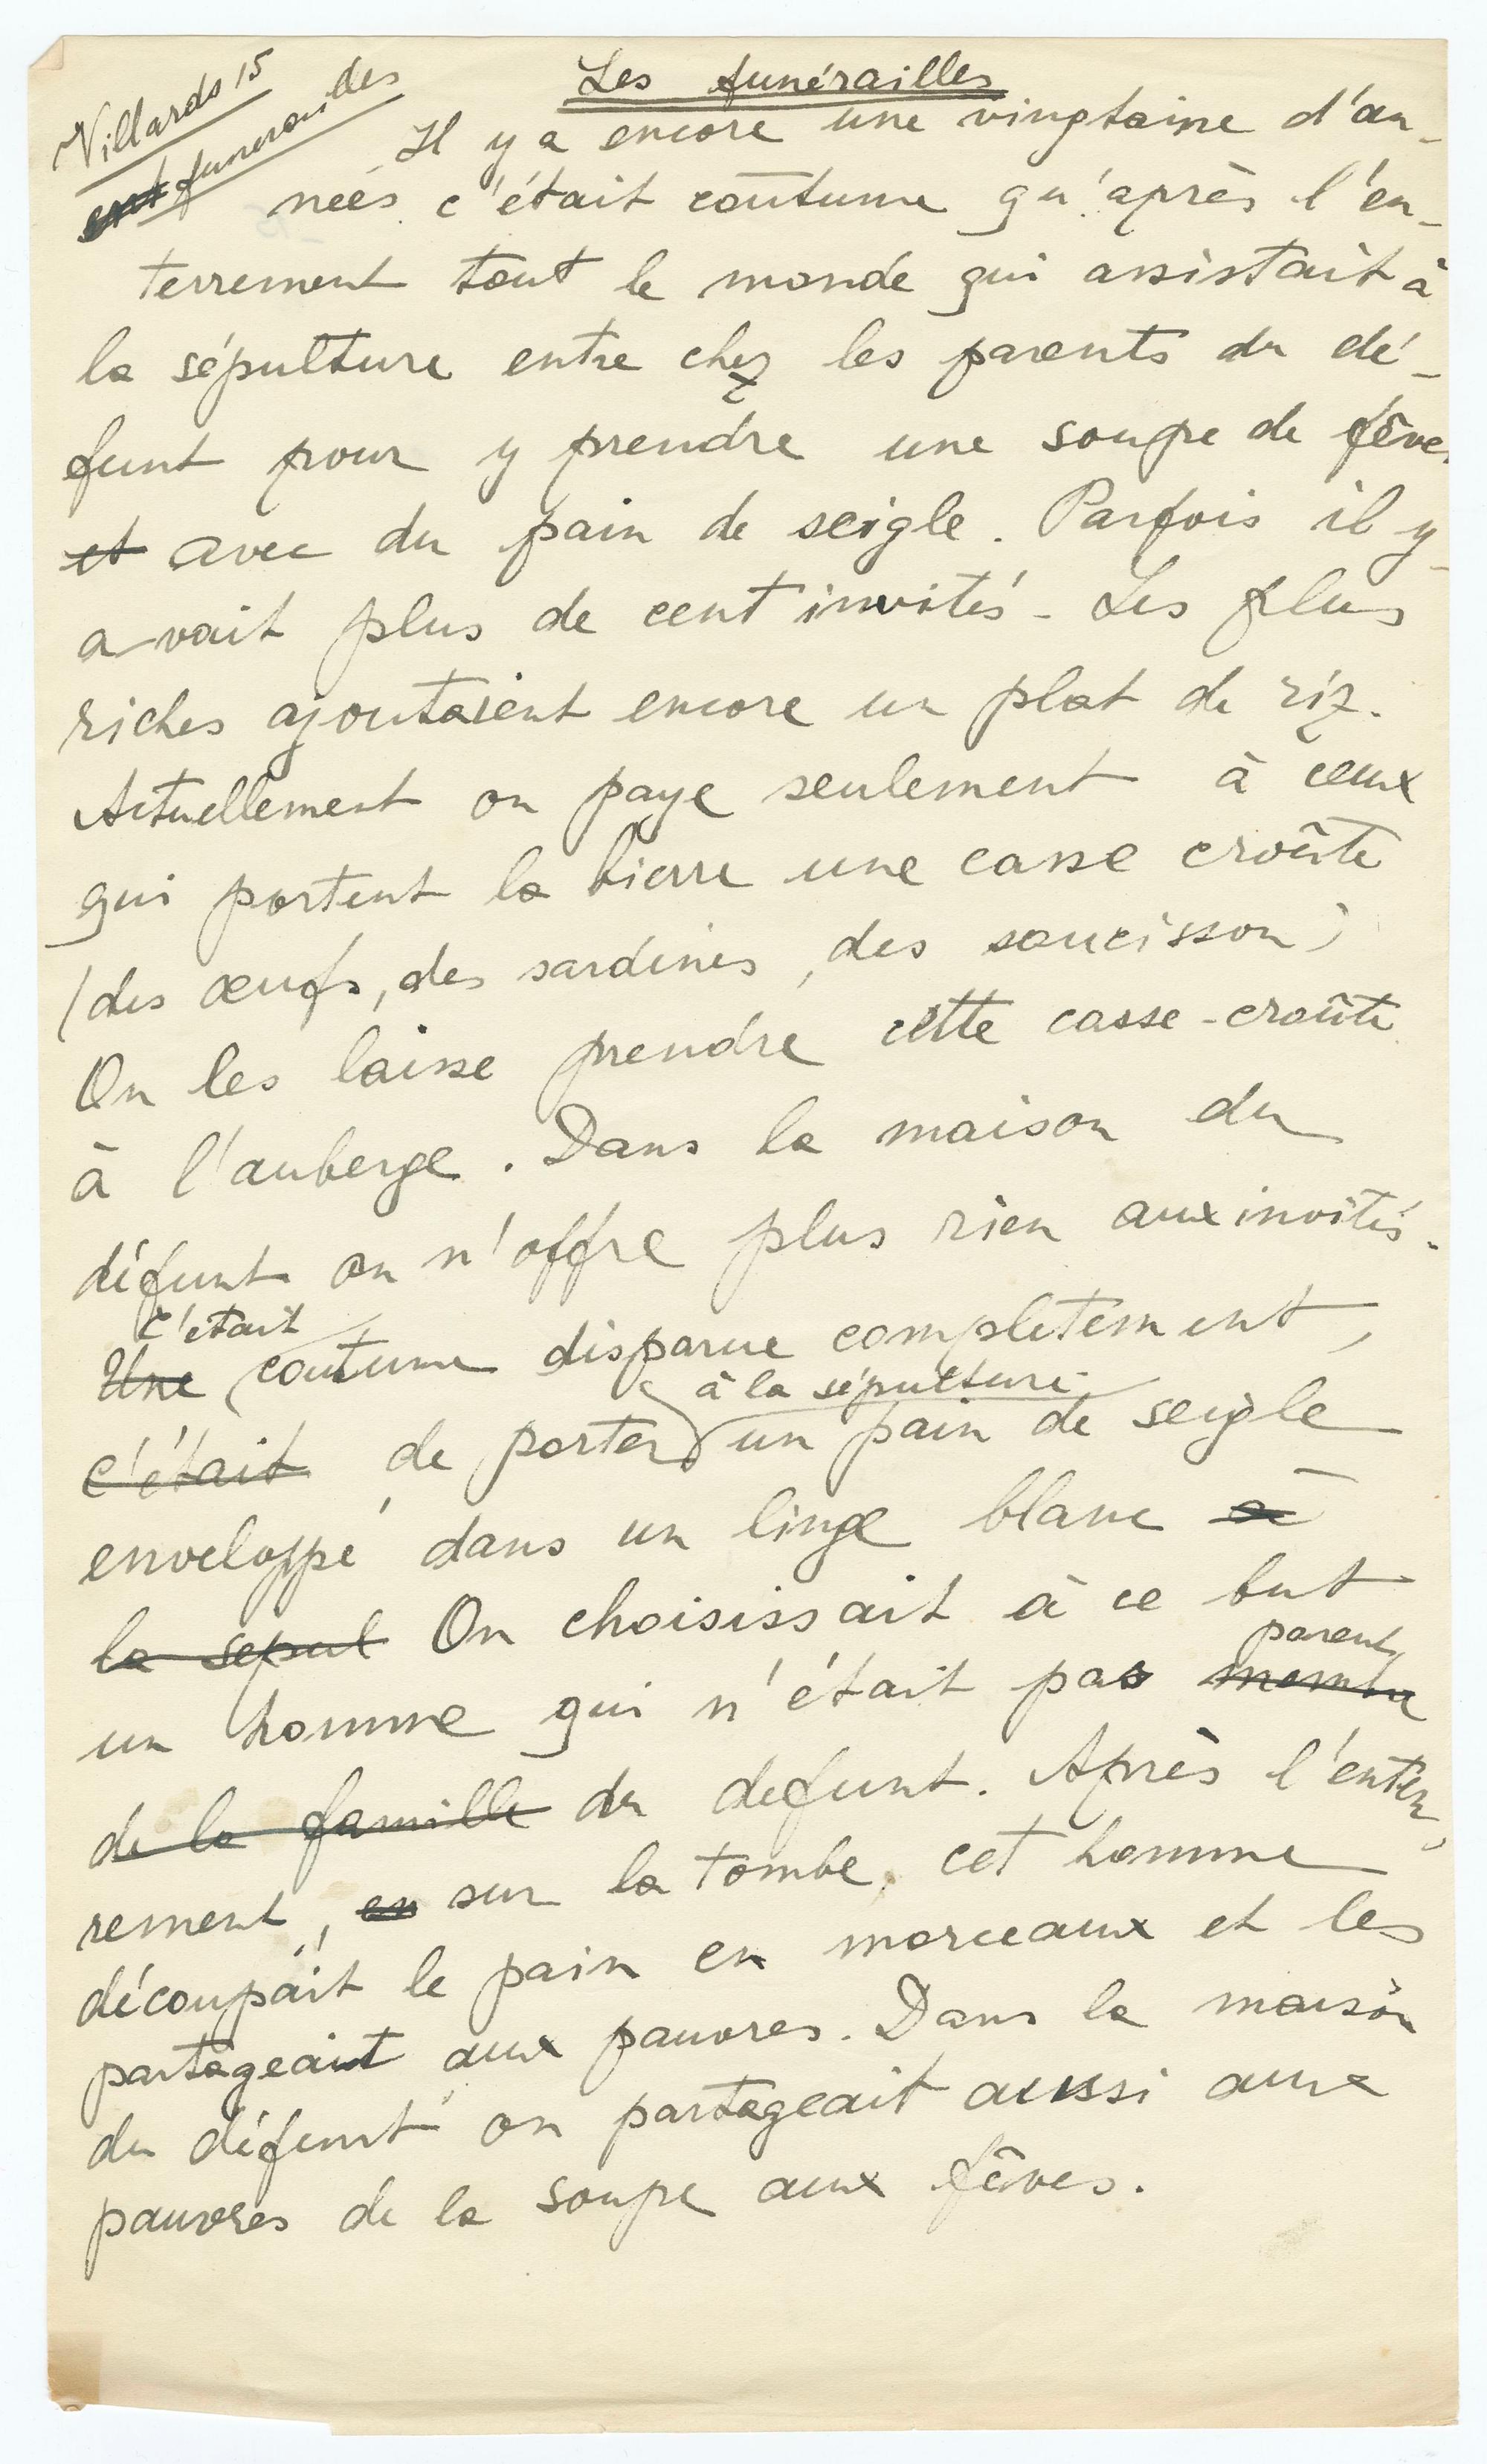 Villards 15
des
funérailles
Les funérailles
Il y a encore une vingtaine d'an-
nées c'était coûtume qu'après l'en-
terrement tout le monde qui assistait à
la sépulture entre chez les parents du dé-
funt pour y prendre une soupe de fêves
et avec du pain de seigle. Parfois il y-
avait plus de cent invités - Les plus
riches ajoutaient encore un plat de riz.
Actuellement on paye seulement à ceux
qui portent la bierre une casse croûte
(des œufs, des sardines, des saucisson)
On les laisse prendre cette casse-croûte
à l'auberge. Dans la maison du
défunt on n'offre plus rien aux invités.
c'était
Une coutume disparue completement,
à la sépulture
c'était de porter un pain de seigle
enveloppé dans un linge blanc à
la sepul On choisissait à ce but
parent
un homme qui n'était pas membre
de la famille du defunt. Après l'enter-
rement, en sur la tombe, cet homme
découpait le pain en morceaux et les
partageait aux pauvres. Dans la maison
du défunt on partageait aussi aux
pauvres de la soupe aux fêves.